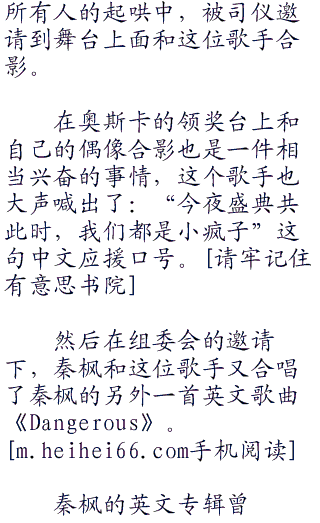 所有人的起哄中，被司仪邀
请到舞台上面和这位歌手合
影。
在奥斯卡的领奖台上和
自己的偶像合影也是一件相
当兴奋的事情，这个歌手也
大声喊出了：“今夜盛典共
此时，我们都是小疯子”这
句中文应援口号。[请牢记住
有意思书院]
然后在组委会的邀请
下，秦枫和这位歌手又合唱
了秦枫的另外一首英文歌曲
《Dangerous》。
[m.heihei66.com手机阅读]
秦枫的英文专辑曾